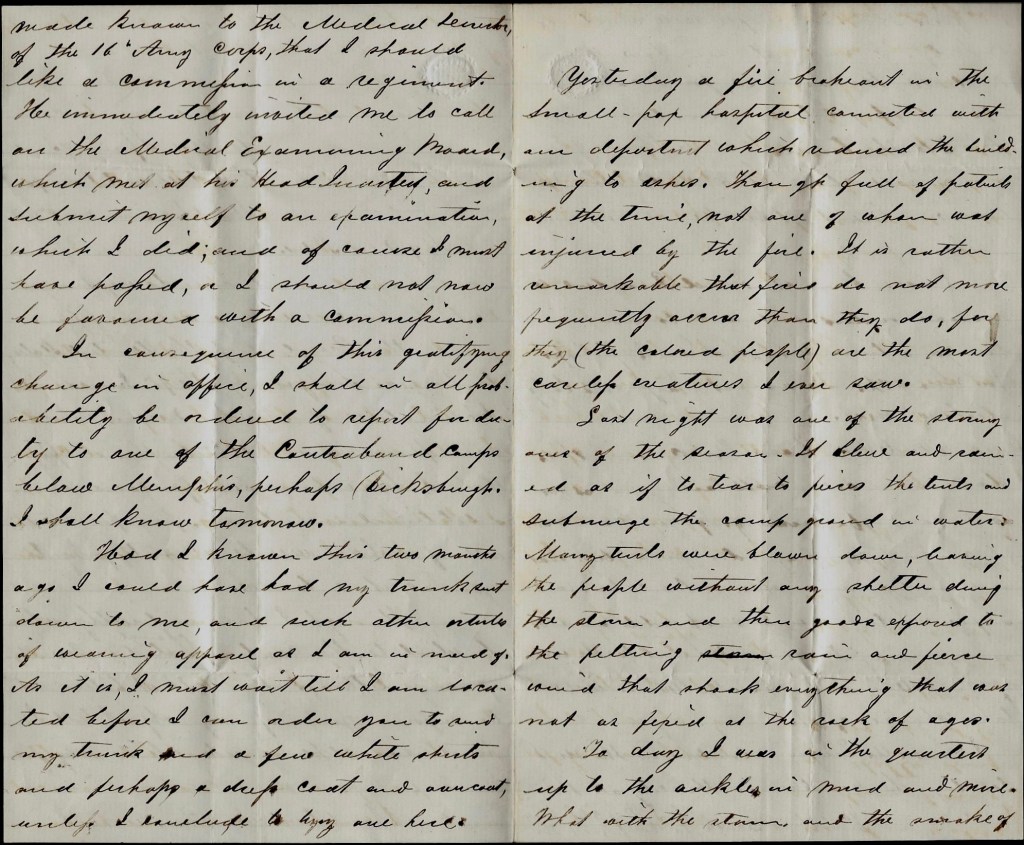 made known to the Medical Director,
of the 16" Army Corps, that I should
like a commission in a regiment.
He immediately invited me to call
on the Medical Examining Board,
which met at his Head Quarters, and
submit myself to an examination,
which I did; and of course I must
have passed, or I should not now
be favoured with a commission.
In consequence of this gratifying
change in office, I shall in all prob-
ability be ordered to report for du-
ty to one of the Contraband Camps
below Memphis, perhaps Vicksburgh.
I shall know tomorrow.
Had I known this two months
ago I could have had my trunk sent
down to me, and such other articles
of wearing apparel as I am in need of.
As it is, I must wait till I am loca-
ted before I can order you to send
my trunk and a few white shirts
and perhaps a dress coat and overcoat,
unless I conclude to buy one here.
Yesterday a fire brokeout in the
small-pox hospital connected with
our department which reduced the build-
ing to ashes. Though full of patients
at the time, not one of whom was
injured by the fire. It is rather
remarkable that fires do not more
frequently occur than they do, for
they (the colored people) are the most
careless creatures I ever saw.
Last night was one of the stormy
ones of the season. It blew and rain-
ed as if to tear to pieces the tents and
submerge the camp ground in water.
Many tents were blown down, leaving
the people without any shelter during
the storm and their goods exposed to
the pelting storm rain and fierce
wind that shook everything that was
not as fixed as the rock of ages.
To day I was in the quarters
up to the ankles in mud and mire.
What with the storm, and the smoke of